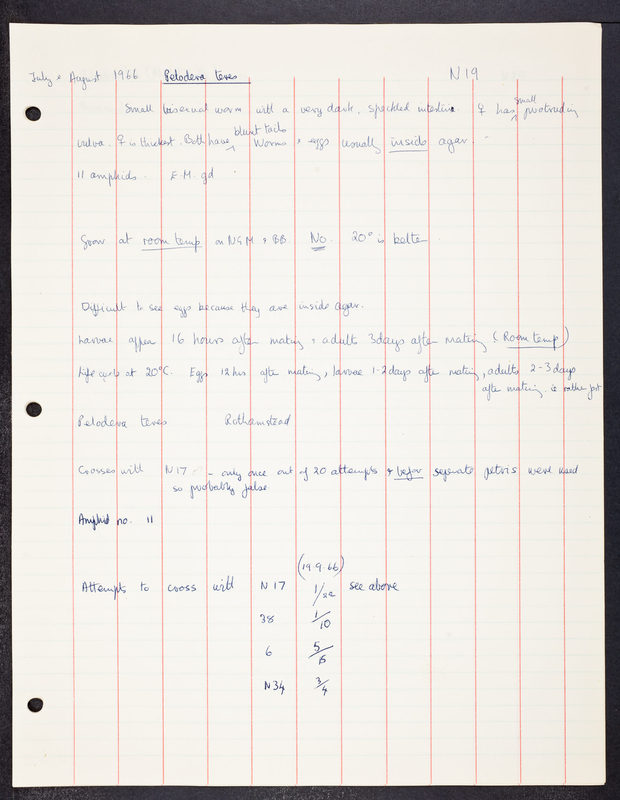 July & August 1966 Pelodera teres N19
Small bisexual worm with a very dark, speckled intestine. ♀ has small protruding
vulva. ♀ is thickest. Both have blunt tails Worms & eggs usually inside agar.
11 amphids. E.M. gd
Grow at room temp on NGM & BB. No. 20° is better
Difficult to see eggs because they are inside agar.
Larvae appear 16 hours after mating & adults 3 days after mating (Room temp)
Life cycle at 20°C. Eggs 12 hrs after mating, larvae 1-2 days after mating, adults 2-3 days
after mating. ie rather fast
Pelodera teres Rothamstead
Crosses with N17 - only once out of 20 attempts & before separate petris were used
so probably false
Amphid no. 11
(19.9.66)
Attempts to cross with N17 1/ see above
38 1/10
6 5/
N34 3/4